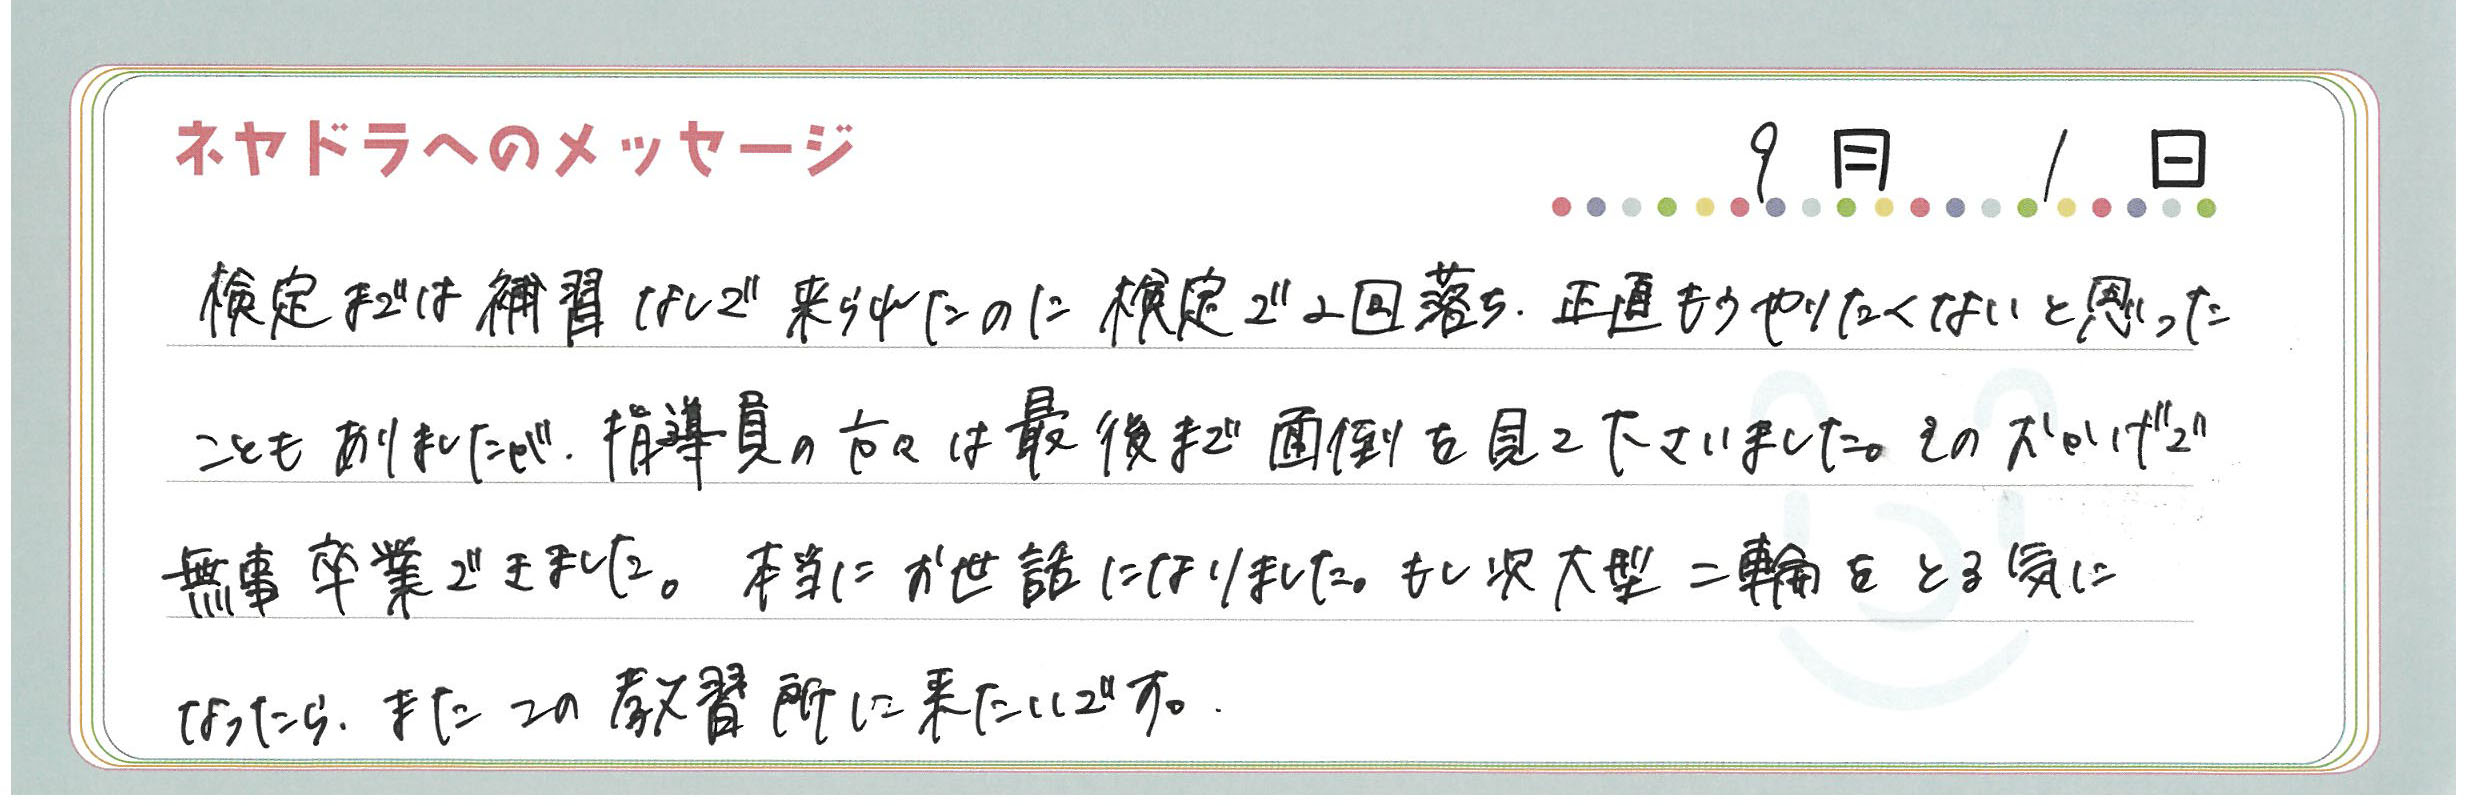 ネヤドラへのメッセージ
9月 1日
検定までは補習なしで来られたのに検定で2回落ち、正直もうやりたくないと思った
こともありましたが、指導員の方々は最後まで面倒を見て下さいました。そのおかげで
無事卒業できました。本当にお世話になりました。もし次大型二輪をとる気に
なったら、またこの教習所に来たいです。